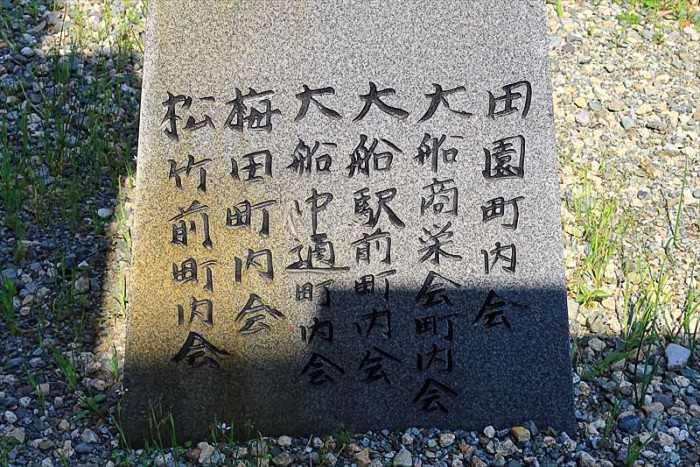 田園町内会
大船商栄会町内会
大船駅前町内会
大船中通町内会
梅田町内会
松竹前町内会